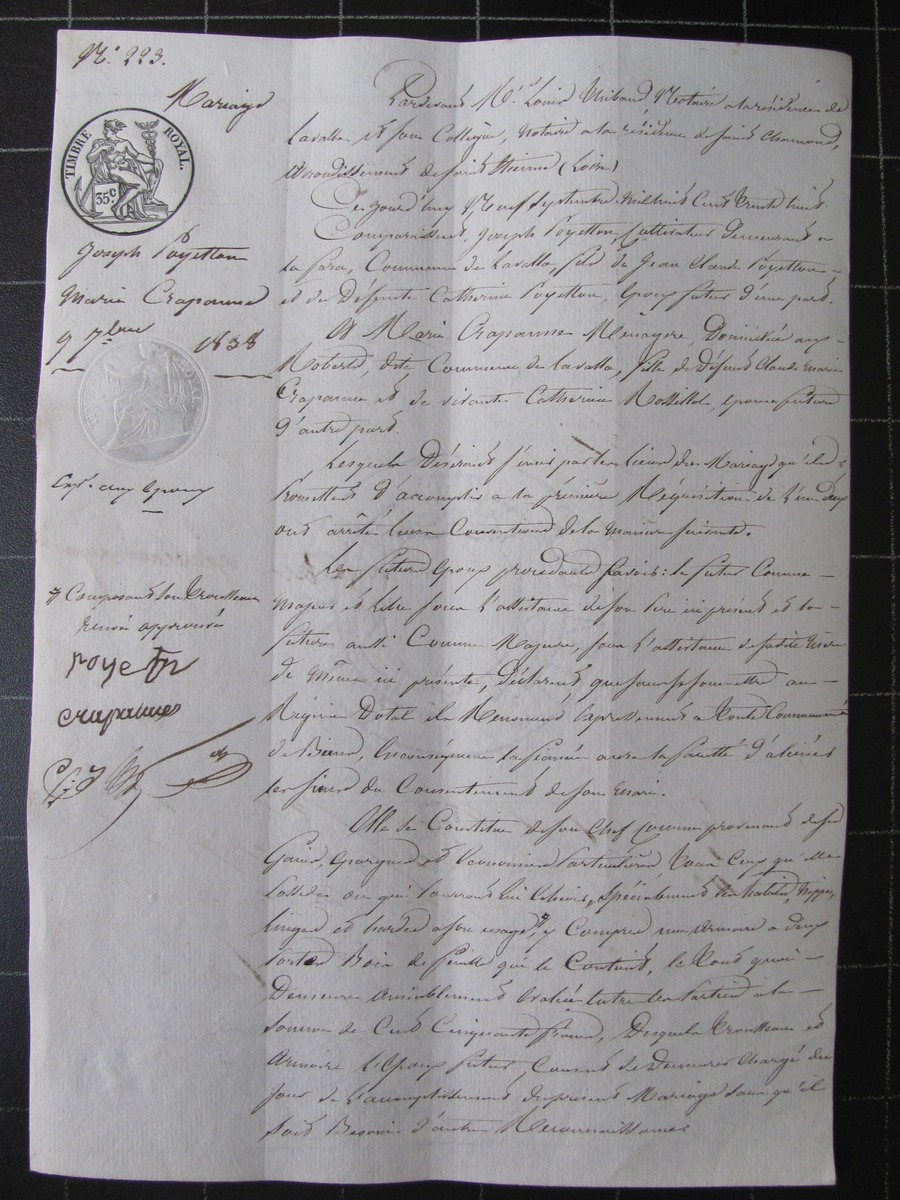 N.° 223.
Mariage
TIMBRE ROYAL.
35c
Joseph Poyetton
Marie Crapanne
9 7bre 1838
Exp.on aux Epoux
Composant son trousseau
renvoi approuvé
poyeton
crapanne
Pardevant Me Louis Thibaud Notaire a la résidence de
Lavalla et son Collègue, notaire a la résidence de saint chamond,
arrondissement de saint Etienne (Loire)
Ce jourd'huy Neuf Septembre Mil huit Cent trente huit.
Comparaissent, Joseph Poyetton, Cultivateur demeurant a
la fara, Commune de Lavalla, fils de Jean Claude Poyetton
et de Défunte Catherine Poyetton, Epoux futur d'une part.
Et Marie Crapanne Ménagère, Domiciliée aux
Roberts, dite Commune de Lavalla, fille de Défunt Claude Marie
Crapanne et de vivante Catherine Rossillol, epouse future
d'autre part.
Lesquels Désirant s'unir par les liens du Mariage qu'ils
Promettent d'accomplir a la première Réquisition de l'un d'eux
ont arrêté leurs Conventions de la Manière suivante.
Les futurs Epoux procédant savoir: le futur Comme
Majeur et libre sous l'assistance de son Père ici présent et la
future aussi Comme Majeure, sous l'assistance de sadite Mère
de même ici présente, déclarent que sans se soumettre au
Régime Dotal ils Renoncent Expressement a toute Communauté
de Biens, En conséquence la fiancée aura la faculté d'aliéner
les siens du Consentement de son Mari.
Elle se Constitue de son Chef comme provenant de ses
Gains, Epargnes et Economies Particulières, tous Ceux qu'elle
Possède ou qui Pourront lui Echoir, spécialement les habits, nippes,
linges et hardes a son usage, y Compris une Armoire a deux
Portes Bois de feuille qui le Contient, le tout quoi
Demeure amiablement Evalué Entre les Parties a la
somme de Cent Cinquante francs, Desquels trousseau et
armoire l'Epoux futur, Consent de Demeurer Chargé du
jour de l'accomplissement du présent Mariage sans qu'il
soit Besoin d'autre Reconnaissance